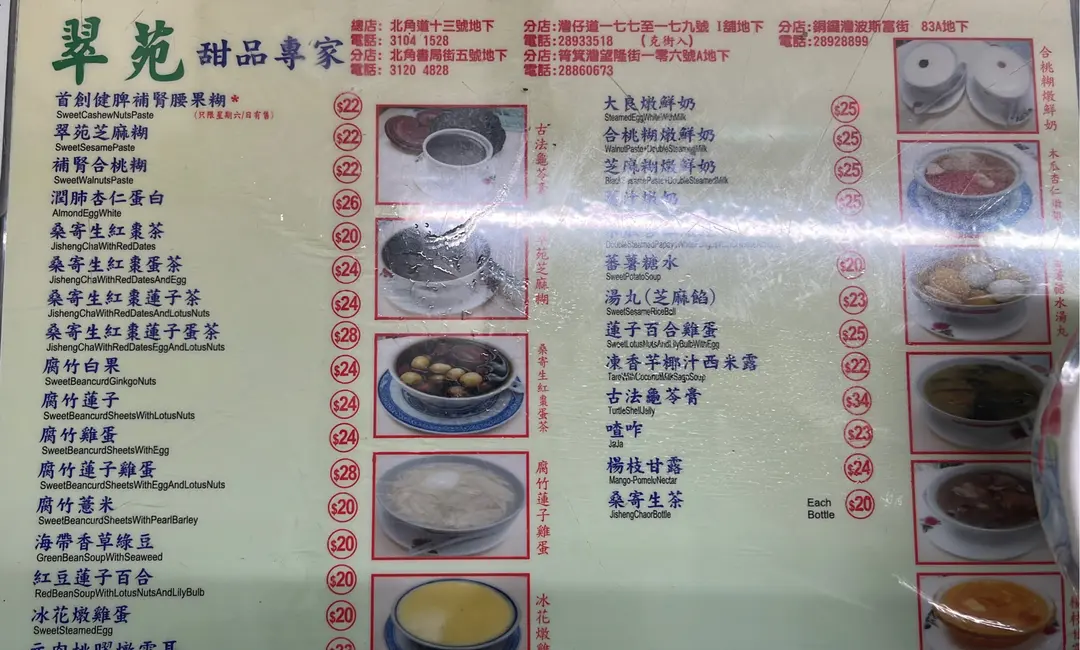 翠苑 甜品專家
總店: 北角道十三號地下
電話: 3104 1528
分店: 北角書局街五號地下
電話: 3120 4828
分店:灣仔道一七七至一七九號 I舖地下
電話:28933518 (克街入)
分店:筲箕灣望隆街一零六號A地下
電話:28860673
分店:銅鑼灣波斯富街 83A地下
電話:28928899
首創健脾補腎腰果糊* $22
SweetCashewNutsPaste (只限星期六/日有售)
翠苑芝麻糊 $22
SweetSesamePaste
補腎合桃糊 $22
SweetWalnutsPaste
潤肺杏仁蛋白 $26
AlmondEggWhite
桑寄生紅棗茶 $20
JishengChaWithRedDates
桑寄生紅棗蛋茶 $24
JishengChaWithRedDatesAndEgg
桑寄生紅棗蓮子茶 $24
JishengChaWithRedDatesAndLotusNuts
桑寄生紅棗蓮子蛋茶 $28
JishengChaWithRedDatesEggAndLotusNuts
腐竹白果 $24
SweetBeancurdGinkgoNuts
腐竹蓮子 $24
SweetBeancurdSheetsWithLotusNuts
腐竹雞蛋 $24
SweetBeancurdSheetsWithEgg
腐竹蓮子雞蛋 $28
SweetBeancurdSheetsWithEggAndLotusNuts
腐竹薏米 $20
SweetBeancurdSheetsWithPearlBarley
海帶香草綠豆 $20
GreenBeanSoupWithSeaweed
紅豆蓮子百合 $20
RedBeanSoupWithLotusNutsAndLilyBulb
冰花燉雞蛋 $20
SweetSteamedEgg
古法龜苓膏
苑芝麻糊
桑寄生紅棗蛋茶
腐竹蓮子雞蛋
冰花燉雞
大良燉鮮奶 $25
SteamedEggWhiteWithMilk
合桃糊燉鮮奶 $25
WalnutPaste+DoubleSteamedMilk
芝麻糊燉鮮奶 $25
BlackSesamePaste+DoubleSteamedMilk
汁燉奶 $25
蕃薯糖水 $20
SweetPotatoSoup
湯丸(芝麻餡) $23
SweetSesameRiceBall
蓮子百合雞蛋 $25
SweetLotusNutsAndLilyBulbWithEgg
凍香芋椰汁西米露 $22
TaroWithCoconutMilkSagoSoup
古法龜苓膏 $34
TurtleShellJally
喳咋 $23
JaJa
楊枝甘露 $24
Mango-PomeluNectar
桑寄生茶 Each Bottle $20
JishengChaorBottle
合桃糊燉鮮奶
糖水湯丸